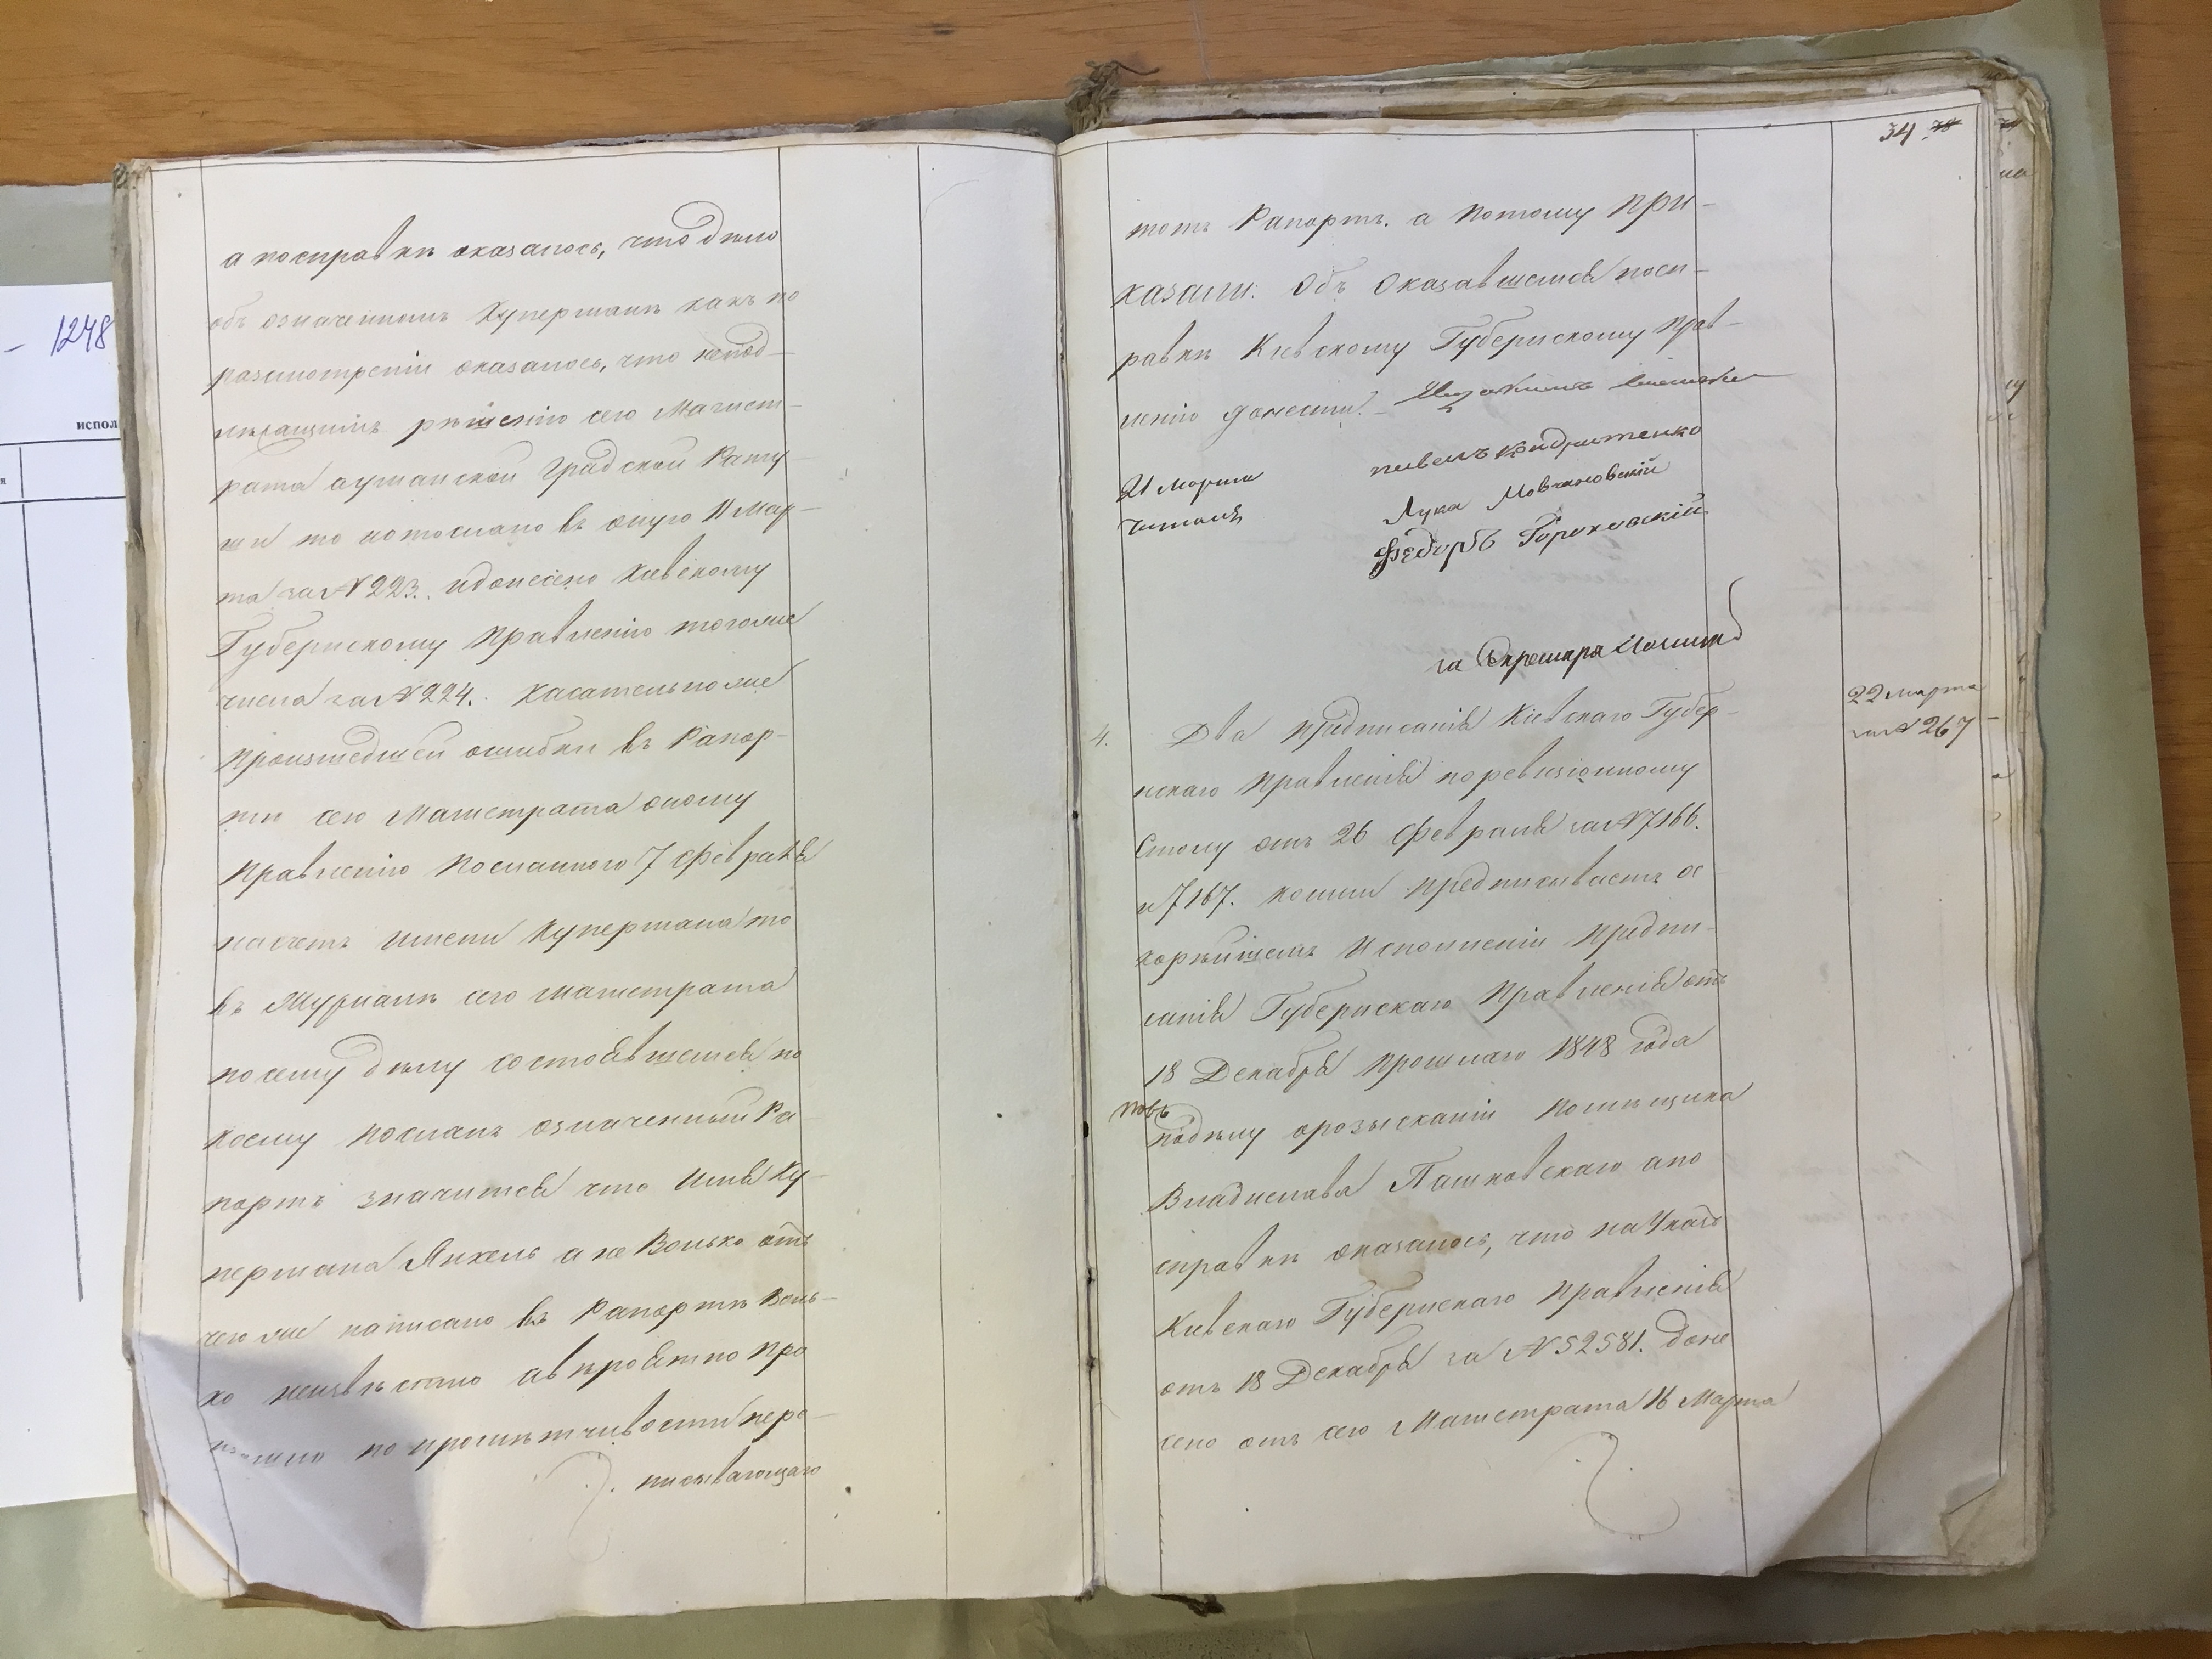 1248
испол
а посправкѣ оказалось, что дѣло
объ означенномъ Куперманѣ какъ по
разсмотреніи оказалось, что непод-
лѣжащимъ рѣшенію сего Магист-
рата ауманской Градской Рату-
ши то иотослано въ оную 11 Мар-
та за № 223. идонесено Кіевскому
Губернскому Правленію тогоже
числа за № 224. Касательноже
произшедшей ошибки въ Рапор-
тѣ сего Магистрата оному
Правленію посланного 7 февраля
насчетъ имени Купермана то
въ Журналѣ сего магистрата
посему дѣлу состоявшемся по
коему посланъ означенный Ра-
портъ значится что имя Ку-
пермана Янкель а не Волько отъ
чего же написано въ Рапортѣ Воль-
ко неизвѣстно авѣроятно про
по промѣтчивости пере-
писывающаго
34 38
тотъ Рапортъ. а потому при-
казали: Объ Оказавшемся посп-
равкѣ Кіевскому Губернскому Прав-
ленію донести.
21 Марта
читалъ
Лука Мовчановскій
Федоръ Гороховскій
за Секретаря
4. Два предписанія Кіевскаго Губер-
нскаго Правленія поревизіонному
Столу отъ 26 февраля за № 7166.
и 7167. коими предписываетъ ос
корѣйшемъ Исполненіи предпи-
санія Губернскаго Правленія отъ
18 Декабря прошлаго 1848 года
подѣлу орозысканіи помѣщика
Владислава Пашковскаго апо
справкѣ оказалось, что на Указъ
Кіевскаго Губернскаго Правленія
отъ 18 Декабря за № 52581. доне
сено отъ сего Магистрата 16 Марта
22 марта
за № 267